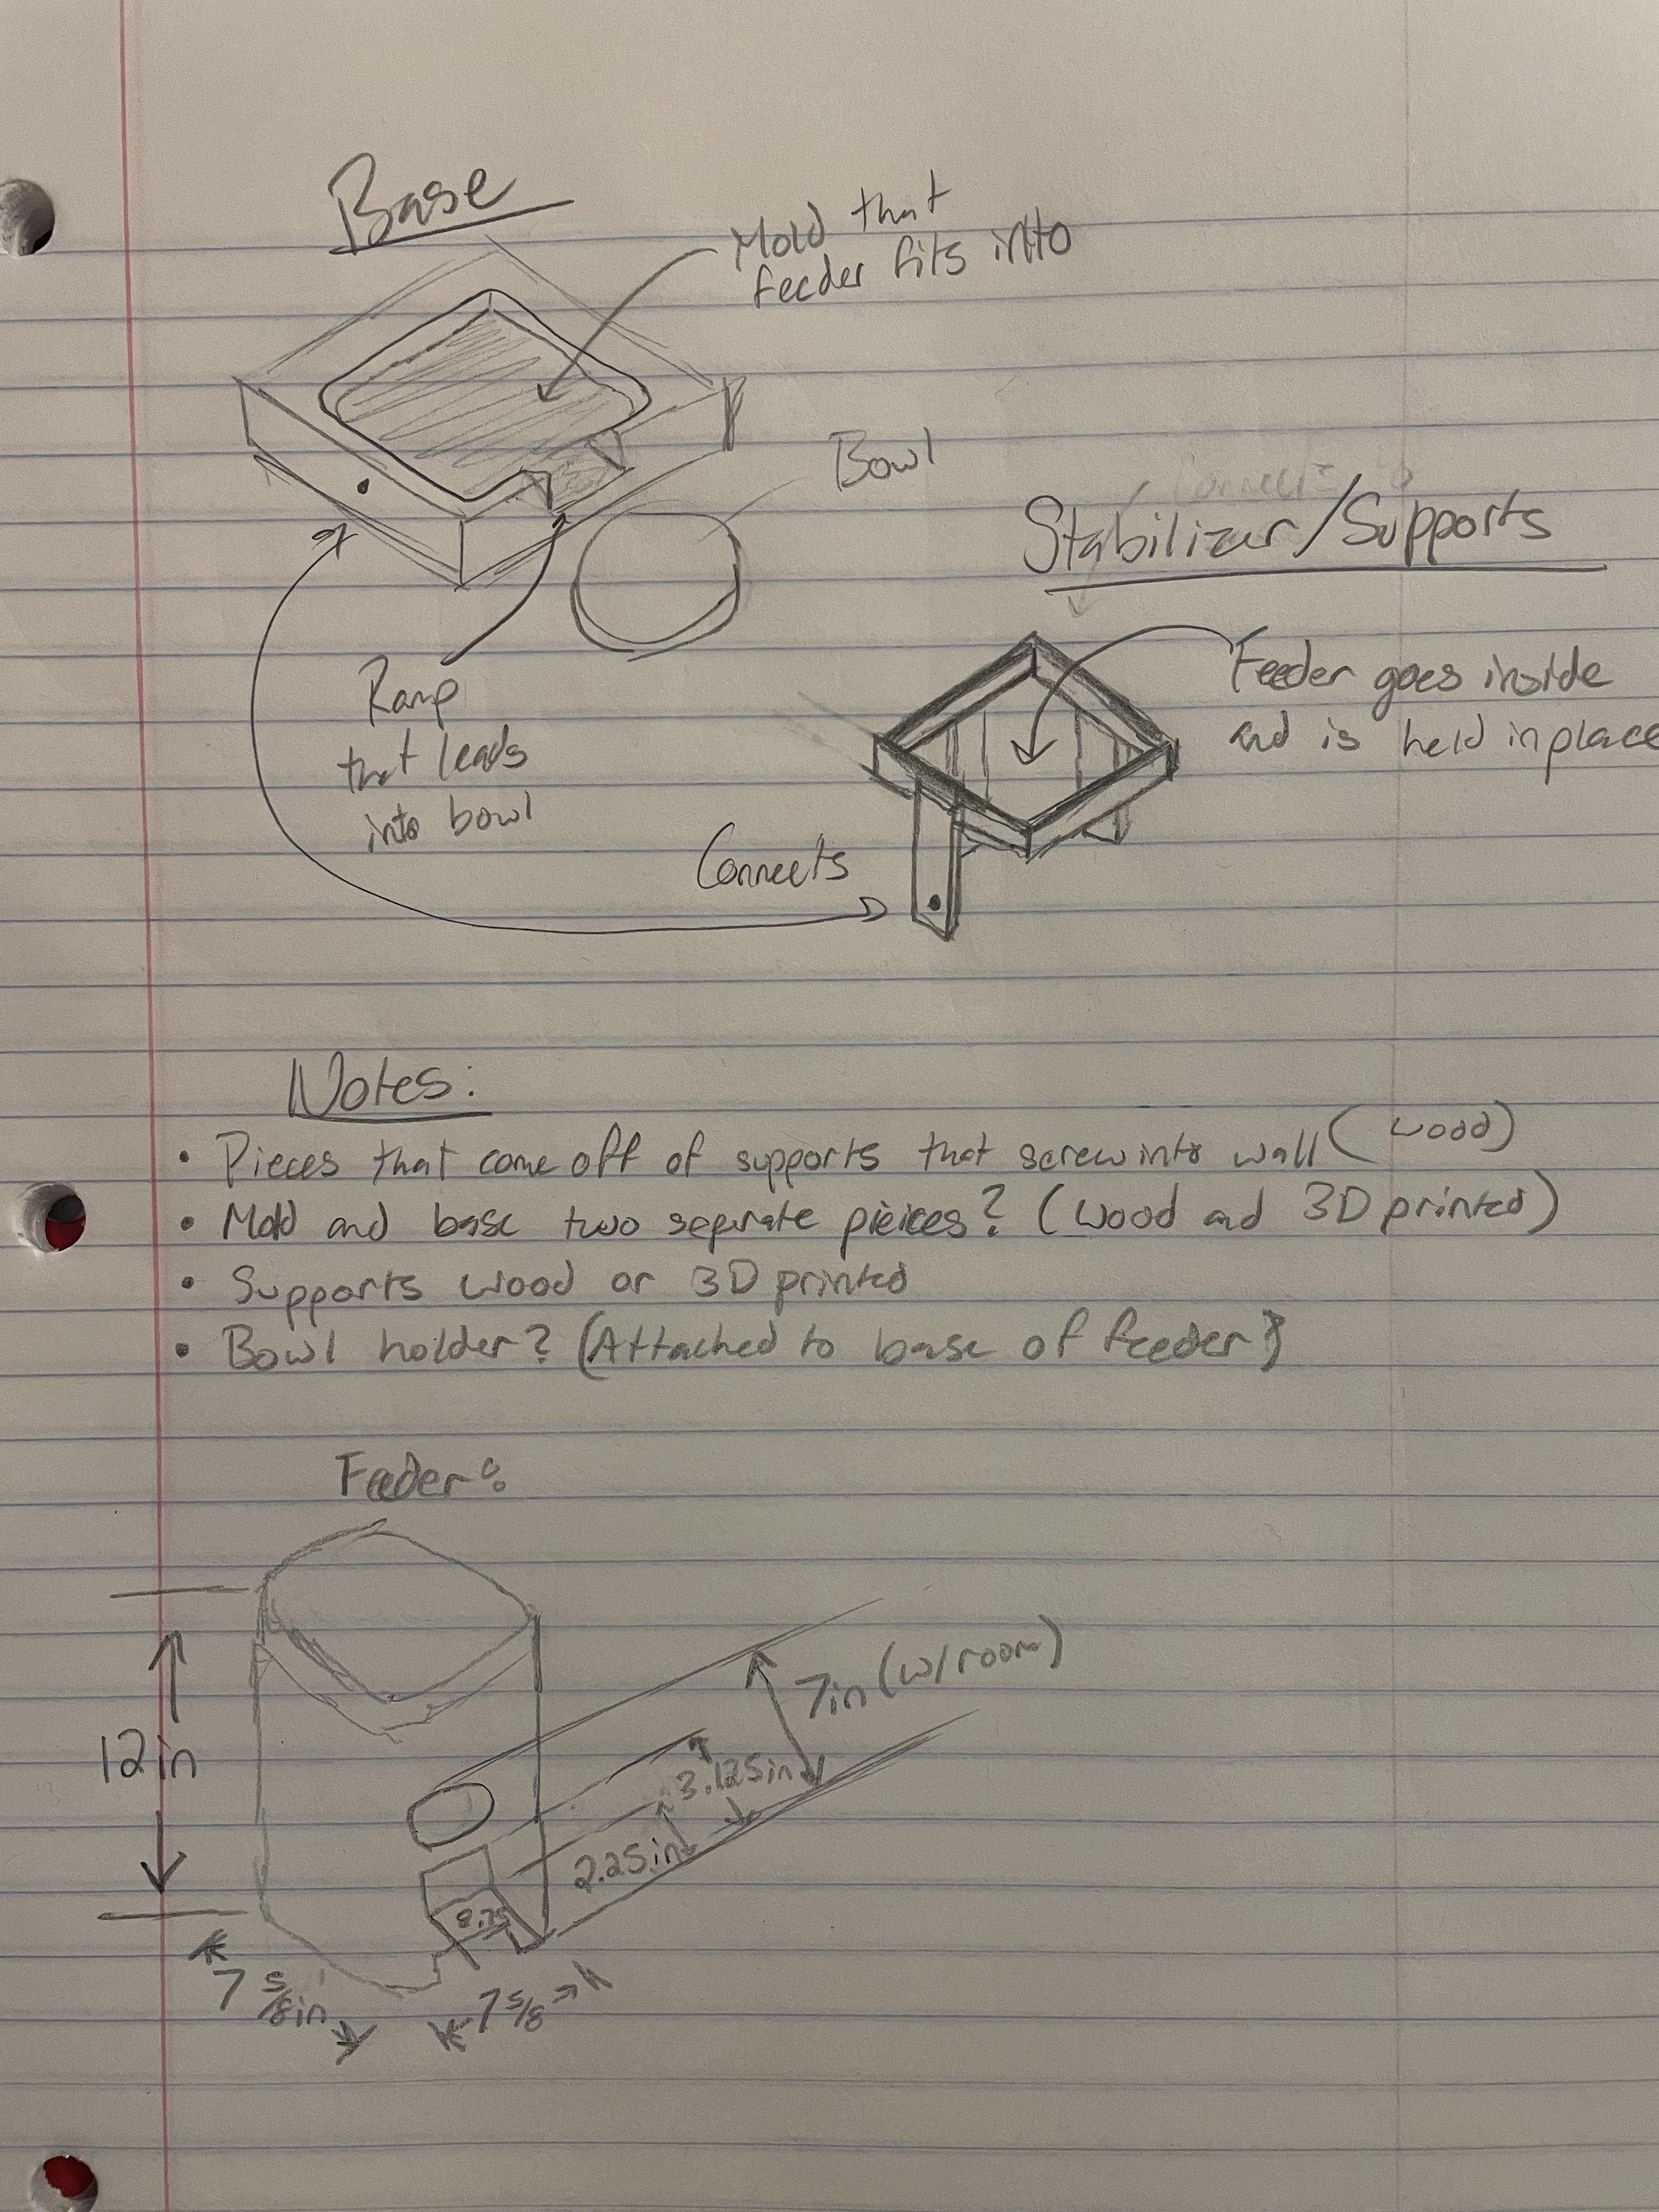 Base
Mold that
feeder fits into
Bowl
Connects to
Stabilizer/Supports
Ramp
that leads
into bowl
Feeder goes inside
and is held in place
Connects
Notes:
• Pieces that come off of supports that screw into wall (wood)
• Mold and base two separate pieices? (Wood and 3D printed)
• Supports wood or 3D printed
• Bowl holder? (Attached to base of feeder?)
Feeder:
7in (w/room)
12in
3.125in
2.25in
7 5/8in
7 5/8